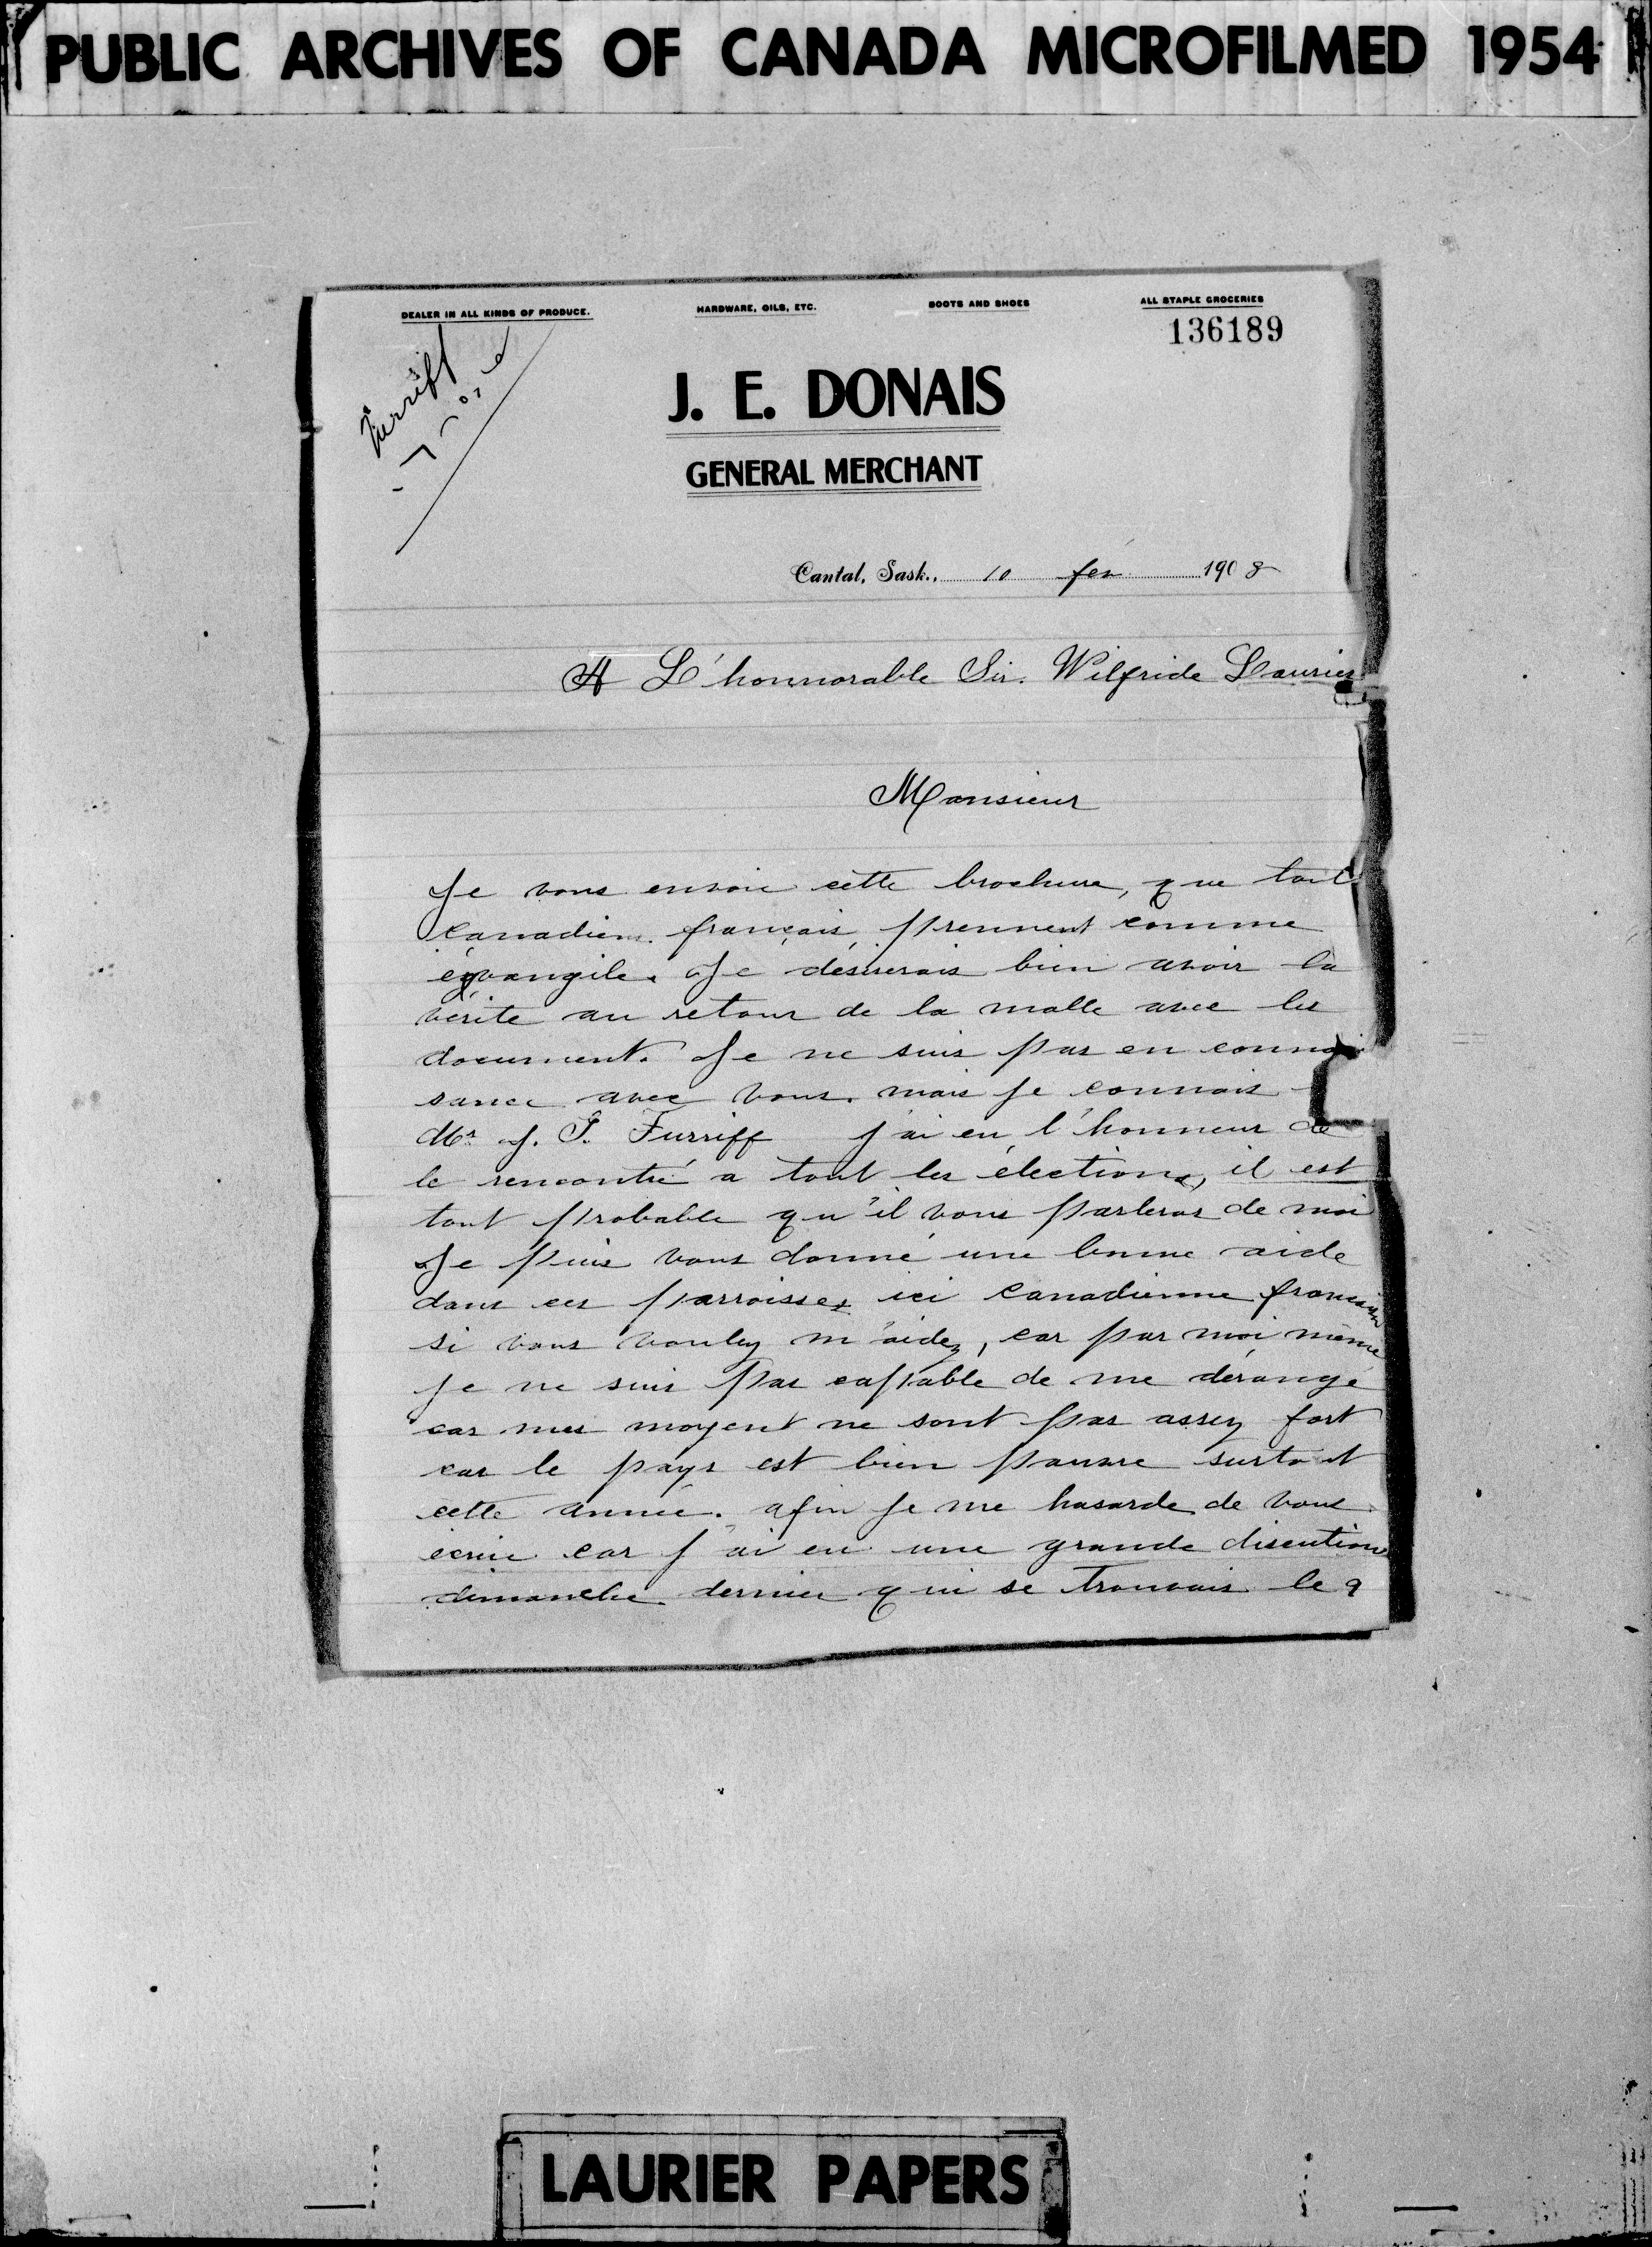 PUBLIC ARCHIVES OF CANADA MICROFILMED 1954
DEALER IN ALL KINDS OF PRODUCE. HARDWARE, OILS, ETC. BOOTS AND SHOES ALL STAPLE GROCERIES
136189
Turriff
J. E. DONAIS
GENERAL MERCHANT
Cantal, Sask., 10 fev 1908
A L'honnorable Sir. Wilfride Laurier
Monsieur
Je vous envoie cette brochure, que tout
Canadiens français prennent comme
évangile. Je désirerais bien avoir la
vérité au retour de la malle avec les
document. Je ne suis pas en connai
sance avec vous. mais je connais
Mr J. G. Turriff j'ai eu l'honneur de
le rencontré a tout les élections, il est
tout probable qu'il vous parleras de moi
Je puis vous donné une bonne aide
dans ces parroisses ici Canadienne français
si vous voulez m'aidez, car par moi même
je ne suis pas capable de me dérangé
car mes moyent ne sont pas assez fort
car le pays est bien pauvre surtout
cette année. afin je me hasarde de vous
écrire car j'ai eu une grande discution
dimanche dernier qui se trouvais le 9
LAURIER PAPERS